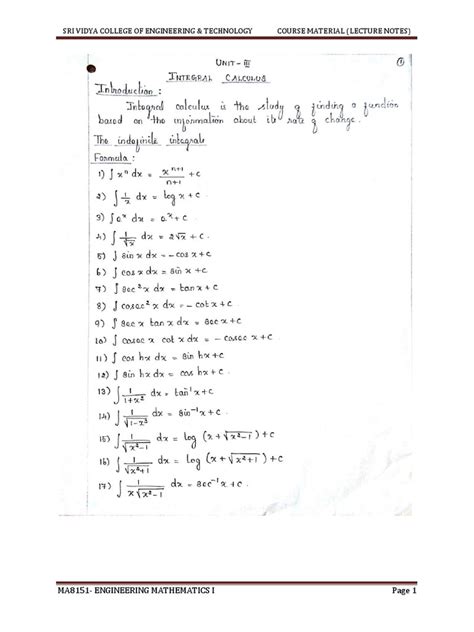 SRI VIDYA COLLEGE OF ENGINEERING & TECHNOLOGY COURSE MATERIAL (LECTURE NOTES)
UNIT - III
1
INTEGRAL CALCULUS
Introduction :
Integral calculus is the study of finding a function
based on the information about its rate of change.
The indefinite integrals
Formula :
1) ∫ xⁿ dx = xⁿ⁺¹/n+1 + c
2) ∫ 1/x dx = log x + c
3) ∫ aˣ dx = aˣ + c
4) ∫ 1/√x dx = 2√x + c.
5) ∫ sin x dx = - cos x + c
6) ∫ cos x dx = sin x + c
7) ∫ sec² x dx = tan x + c
8) ∫ cosec² x dx = - cot x + c
9) ∫ sec x tan x dx = sec x + c
10) ∫ cosec x cot x dx = - cosec x + c
11) ∫ cos hx dx = sin hx + c
12) ∫ sin hx dx = cos hx + c
13) ∫ 1/1+x² dx = tan⁻¹ x + c
14) ∫ 1/√1-x² dx = sin⁻¹ x + c
15) ∫ 1/√x²-1 dx = log (x + √x²-1) + c
16) ∫ 1/√x²+1 dx = log (x + √x²+1) + c
17) ∫ 1/x√x²-1 dx = sec⁻¹ x + c
MA8151- ENGINEERING MATHEMATICS I Page 1